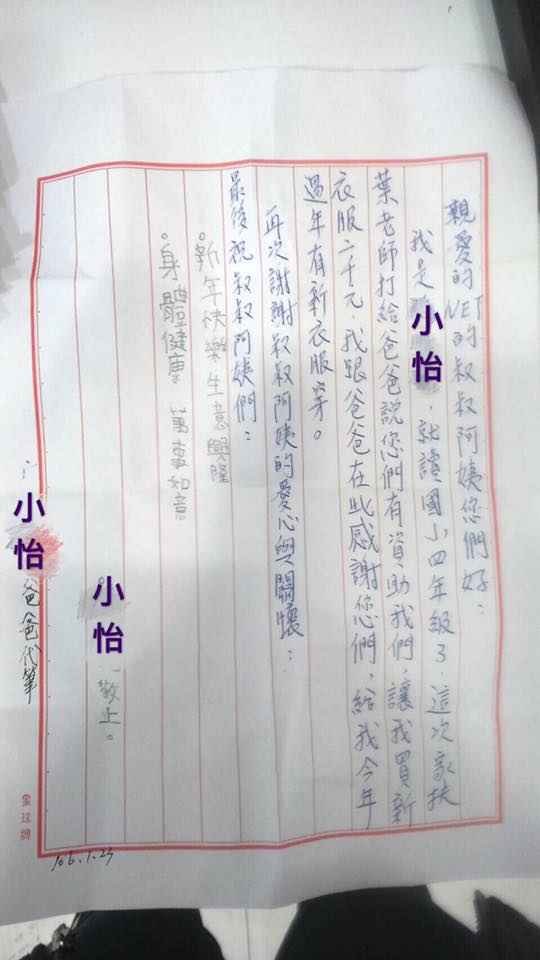 親愛的NET的叔叔阿姨您們好：
我是小怡，就讀國小四年級了，這次家扶
葉老師打給爸爸說您們有資助我們，讓我買新
衣服二千元，我跟爸爸在此感謝您們，給我今年
過年有新衣服穿。
再次謝謝叔叔阿姨的愛心與關懷：
最後祝叔叔阿姨們：
。新年快樂 生意興隆
。身體健康 萬事如意
小怡 敬上。
小怡爸爸代筆
106.1.23
象球牌